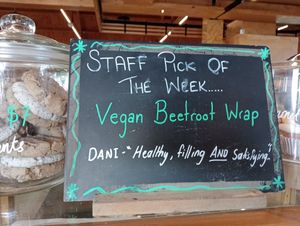 STAFF PICK OF
THE WEEK.....
Vegan Beetroot Wrap
DANI-"Healthy, filling AND satisfying."
$7